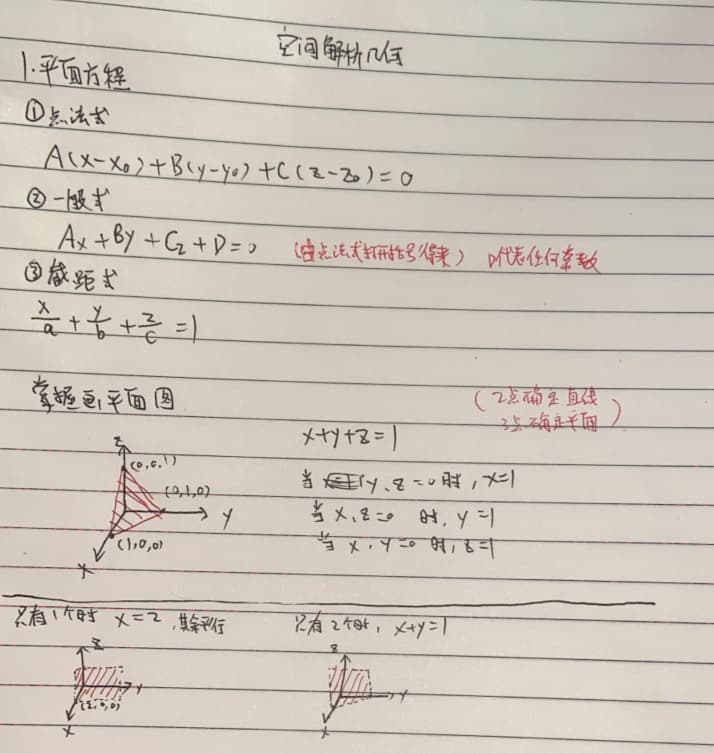 空间解析几何
1.平面方程
①点法式
A(x-x₀)+B(y-y₀)+C(z-z₀)=0
②一般式
Ax+By+Cz+D=0 (由点法式打开括号得来) D代表任何常数
③截距式
x/a+y/b+z/c=1
掌握画平面图 (2点确定直线
3点确定平面)
x+y+z=1
z
(0,0,1)
(0,1,0)
y
(1,0,0)
x
当 y、z=0时,x=1
当 x、z=0 时,y=1
当 x、y=0 时,z=1
只有1个时 x=2,其余平行
z
y
(2,0,0)
x
只有2个时,x+y=1
z
y
x